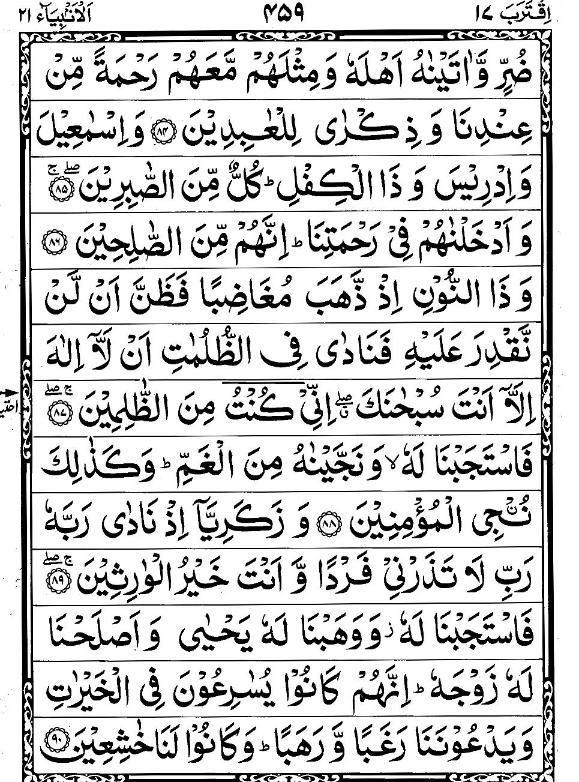 اِقْتَرَبَ ١٧ ۴۵۹ اَلْاَنْبِيَآء ٢١
ضُرٍّ وَّاٰتَيْنٰهُ اَهْلَهٗ وَمِثْلَهُمْ مَّعَهُمْ رَحْمَةً مِّنْ
عِنْدِنَا وَ ذِكْرٰى لِلْعٰبِدِيْنَ ﴿۸۴﴾ وَاِسْمٰعِيْلَ
وَاِدْرِيْسَ وَ ذَا الْكِفْلِ ؕ كُلٌّ مِّنَ الصّٰبِرِيْنَ ﴿۸۵﴾ ۚۖ
وَ اَدْخَلْنٰهُمْ فِيْ رَحْمَتِنَا ؕ اِنَّهُمْ مِّنَ الصّٰلِحِيْنَ ﴿۸۶﴾
وَ ذَا النُّوْنِ اِذْ ذَّهَبَ مُغَاضِبًا فَظَنَّ اَنْ لَّنْ
نَّقْدِرَ عَلَيْهِ فَنَادٰى فِي الظُّلُمٰتِ اَنْ لَّاۤ اِلٰهَ
اِلَّاۤ اَنْتَ سُبْحٰنَكَ ۖ اِنِّيْ كُنْتُ مِنَ الظّٰلِمِيْنَ ﴿۸۷﴾ ۚۖ
فَاسْتَجَبْنَا لَهٗ ۙ وَ نَجَّيْنٰهُ مِنَ الْغَمِّ ؕ وَكَذٰلِكَ
نُـْۨجِي الْمُؤْمِنِيْنَ ﴿۸۸﴾ وَ زَكَرِيَّاۤ اِذْ نَادٰى رَبَّهٗ
رَبِّ لَا تَذَرْنِيْ فَرْدًا وَّ اَنْتَ خَيْرُ الْوٰرِثِيْنَ ﴿۸۹﴾ ۚۖ
فَاسْتَجَبْنَا لَهٗ ؗ وَوَهَبْنَا لَهٗ يَحْيٰى وَاَصْلَحْنَا
لَهٗ زَوْجَهٗ ؕ اِنَّهُمْ كَانُوْا يُسٰرِعُوْنَ فِي الْخَيْرٰتِ
وَيَدْعُوْنَنَا رَغَبًا وَّ رَهَبًا ؕ وَكَانُوْا لَنَا خٰشِعِيْنَ ﴿۹۰﴾